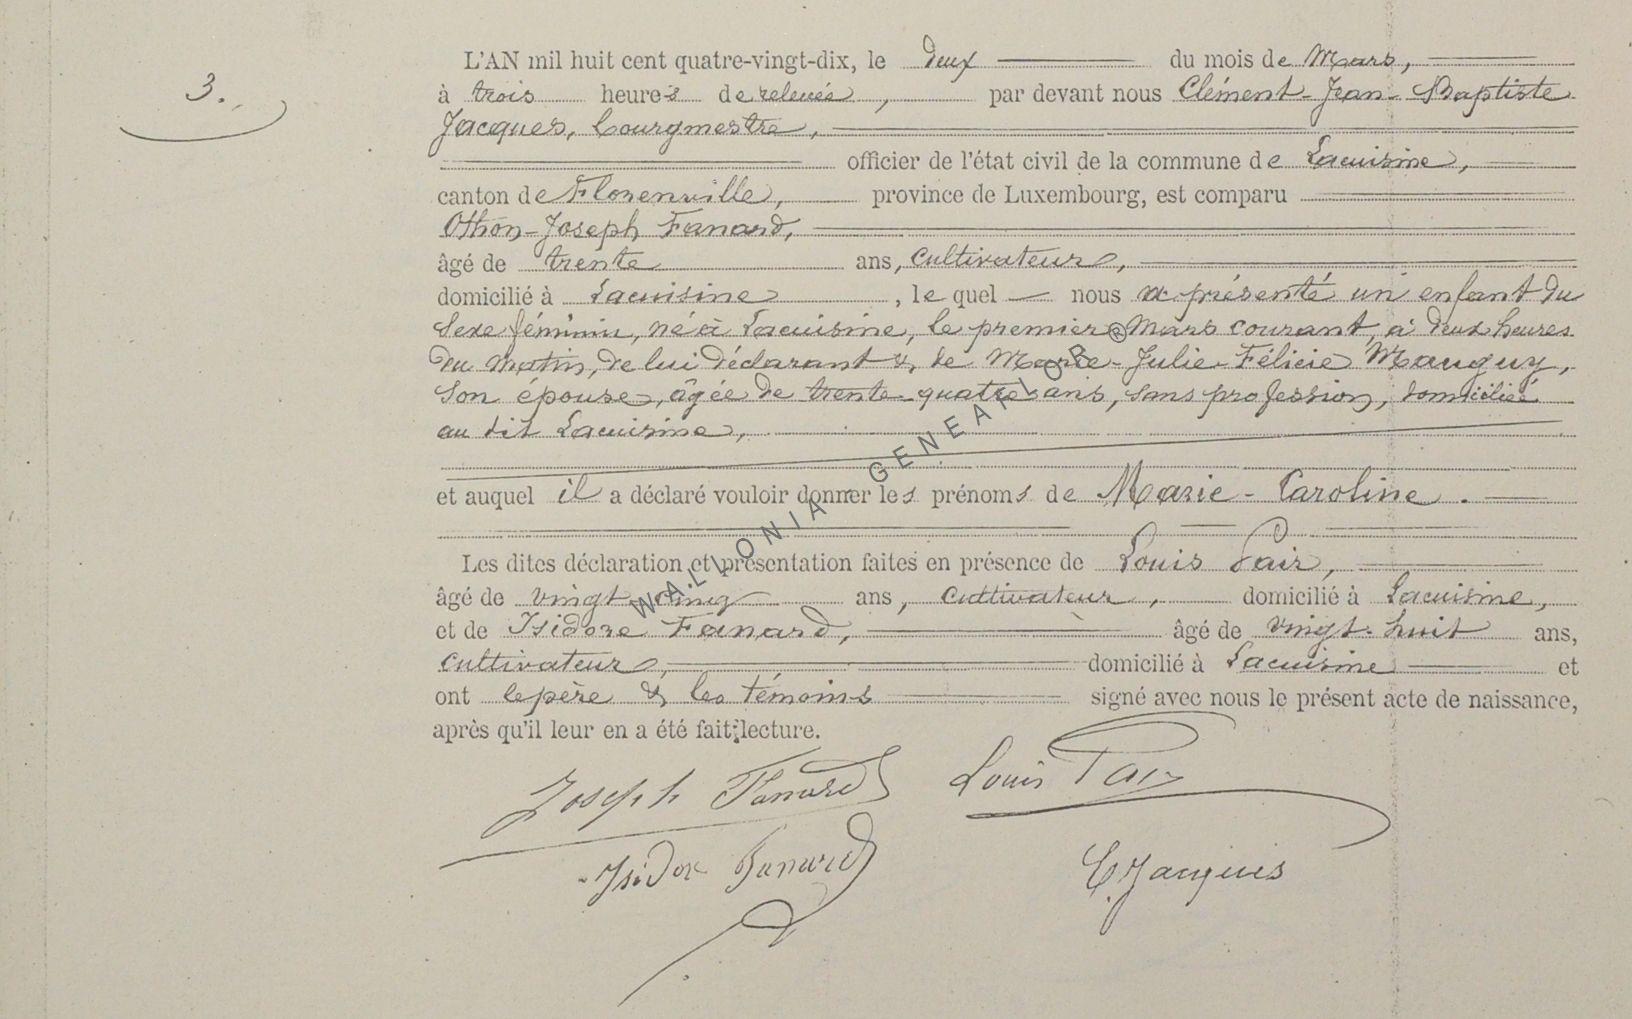 3.
L'AN mil huit cent quatre-vingt-dix, le deux du mois de Mars,
à trois heures de relevée, par devant nous Clément-Jean-Baptiste
Jacques, bourgmestre,
officier de l'état civil de la commune de Lacuisine,
canton de Florenville, province de Luxembourg, est comparu
Othon-Joseph Fanard,
âgé de trente ans, cultivateur,
domicilié à Lacuisine, le quel nous a présenté un enfant du
sexe féminin, né à Lacuisine, le premier Mars courant, à deux heures
du matin, de lui déclarant & de Marie-Julie-Félicie Mauguy,
son épouse, âgée de trente-quatre ans, sans profession, domiciliée
au dit Lacuisine,
et auquel il a déclaré vouloir donner les prénoms de Marie-Caroline.
Les dites déclaration et présentation faites en présence de Louis Pair,
âgé de vingt-cinq ans, cultivateur, domicilié à Lacuisine,
et de Isidore Fanard, âgé de vingt-huit ans,
cultivateur, domicilié à Lacuisine et
ont le père & les témoins signé avec nous le présent acte de naissance,
après qu'il leur en a été fait lecture.
Joseph Fanard Louis Pair
Isidor Fanard C. Jacques
WALLONIA GENEAFLOR ®